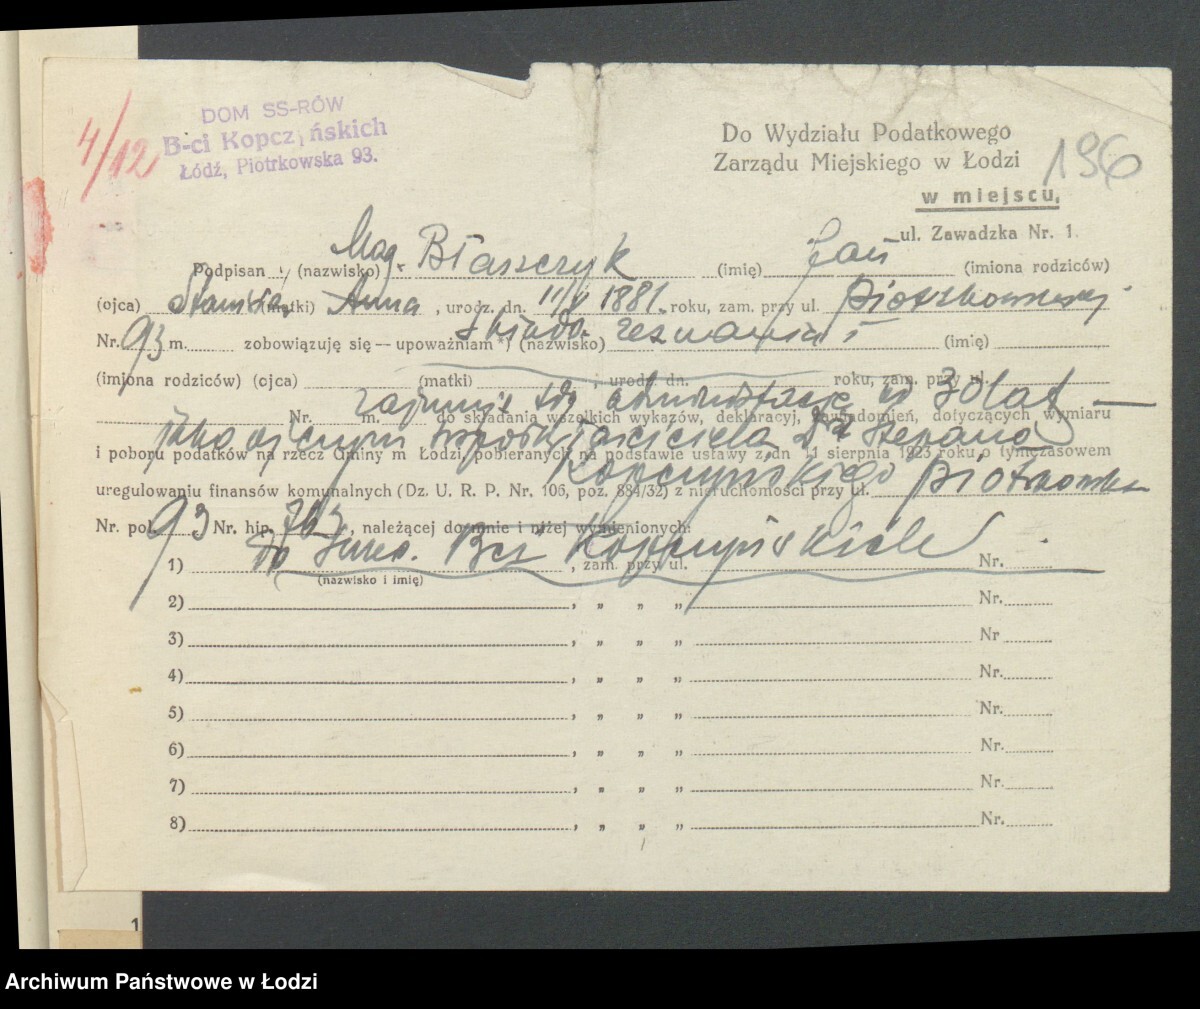 4/12
DOM SS-RÓW
B-ci Kopczyńskich
Łódź, Piotrkowska 93.
Do Wydziału Podatkowego
Zarządu Miejskiego w Łodzi
196
w miejscu,
ul. Zawadzka Nr. 1.
Podpisan (nazwisko) Mag. Błaszczyk (imię) Jan (imiona rodziców)
(ojca) Stanisła (matki) Anna, urodz. dn. 11/V 1881. roku, zam. przy ul. Piotrkowskiej
Nr. 93 m. zobowiązuję się — upoważniam *) (nazwisko) zeznania (imię)
(imiona rodziców) (ojca) (matki) , urodz. dn. roku, zam. przy ul.
zajmuje się administracją od 30 lat —
Nr. m. do składania wszelkich wykazów, deklaracyj, zawiadomień, dotyczących wymiaru
Dr Stefana
i poboru podatków na rzecz Gminy m Łodzi, pobieranych na podstawie ustawy z dn 11 sierpnia 1923 roku o tymczasowem
Kopczyńskiego
uregulowaniu finansów komunalnych (Dz. U. R. P. Nr. 106, poz. 884/32) z nieruchomości przy ul. Piotrkowska
Nr. pol 93 Nr. hip. 763, należącej do mnie i niżej wymienionych:
1) Bci Kopczyńskich , zam. przy ul. Nr.
(nazwisko i imię)
2) , „ „ „ Nr.
3) , „ „ „ Nr
4) , „ „ „ Nr.
5) , „ „ „ Nr.
6) , „ „ „ Nr.
7) , „ „ „ Nr.
8) , „ „ „ Nr.
1
Archiwum Państwowe w Łodzi